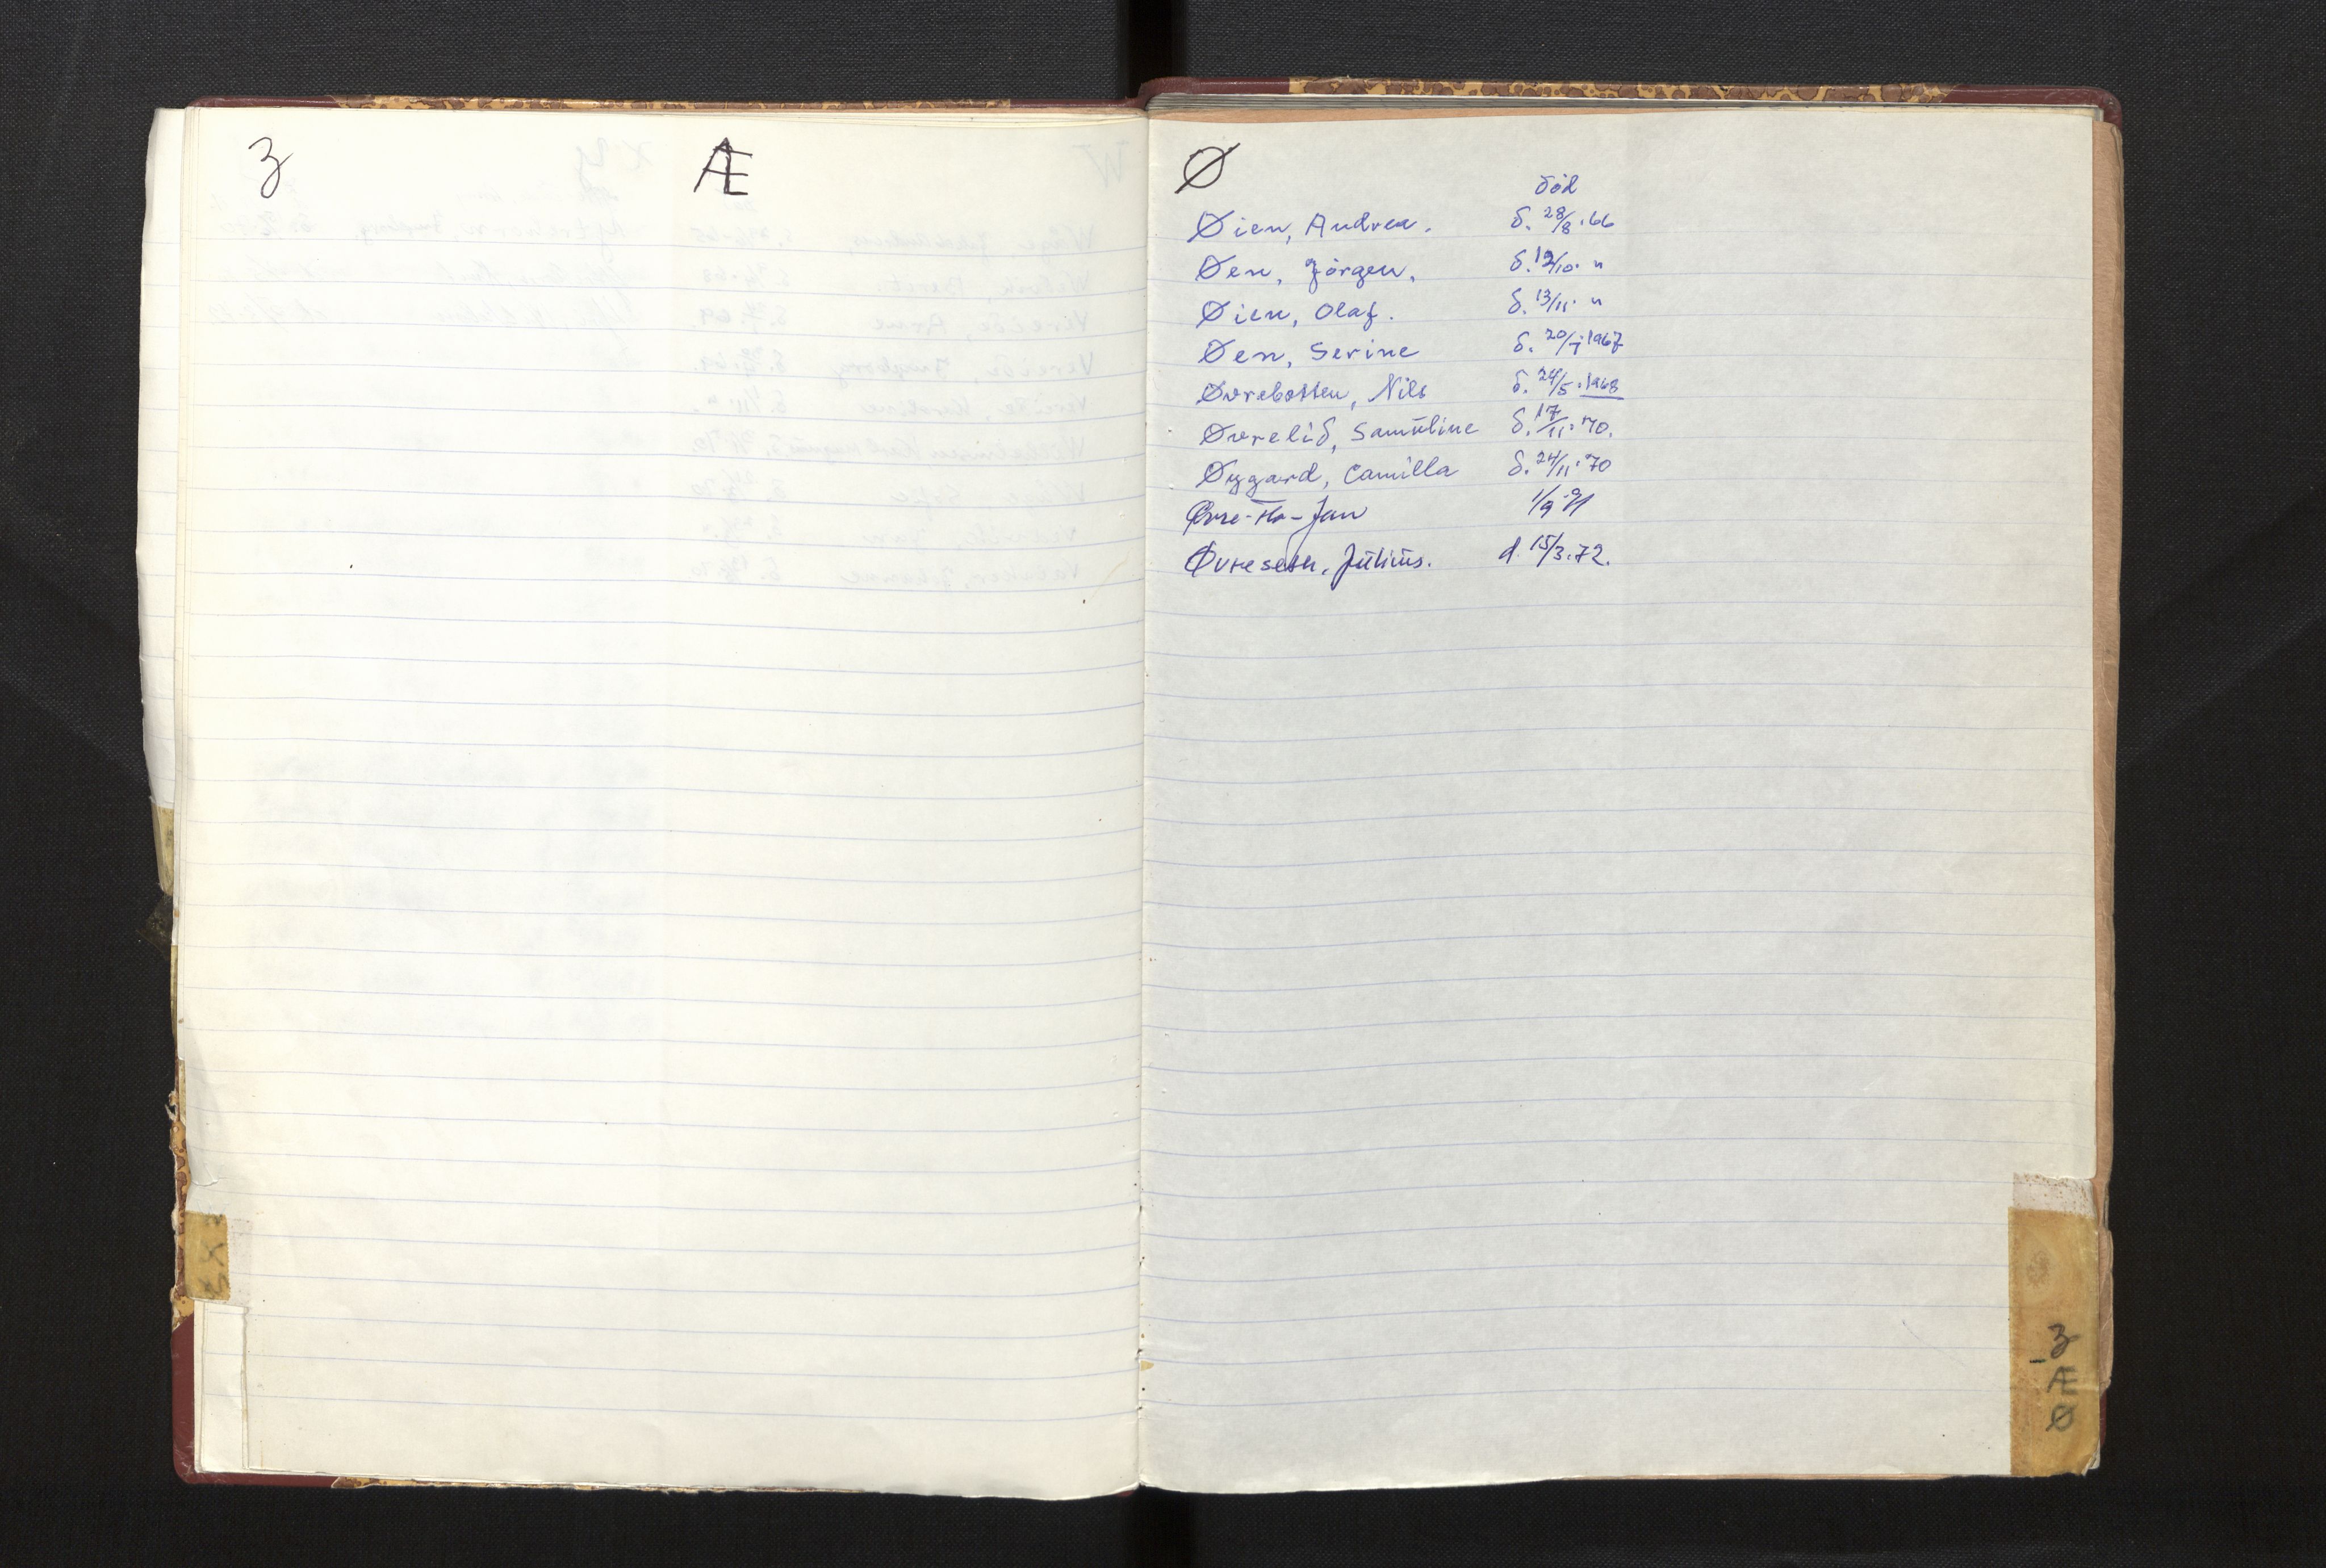 Z Æ
Ø
död
Øien, Andrea. d. 28/8.66
Øen, Jörgen. d. 19/10. "
Øien, Olaf. d. 13/11. "
Øen, Serine d. 20/1.1967
Øvrebotten, Nils d. 24/5.1968
Øvrelid, Samüline d. 17/11.70.
Øygard, Camilla d. 24/11.70
Øvre-Jan 1/9
Øvreseth, Jülius. d. 15/3.72.
Z
Æ
Ø